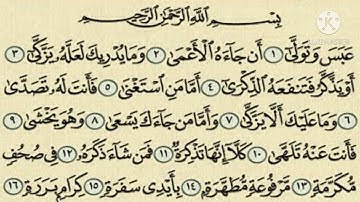 بِسْمِ اللَّهِ الرَّحْمَٰنِ الرَّحِيمِ
عَبَسَ وَتَوَلَّىٰٓ ١ أَن جَآءَهُ ٱلْأَعْمَىٰ ٢ وَمَا يُدْرِيكَ لَعَلَّهُۥ يَزَّكَّىٰٓ ٣
أَوْ يَذَّكَّرُ فَتَنفَعَهُ ٱلذِّكْرَىٰٓ ٤ أَمَّا مَنِ ٱسْتَغْنَىٰ ٥ فَأَنتَ لَهُۥ تَصَدَّىٰ
٦ وَمَا عَلَيْكَ أَلَّا يَزَّكَّىٰ ٧ وَأَمَّا مَن جَآءَكَ يَسْعَىٰ ٨ وَهُوَ يَخْشَىٰ ٩
فَأَنتَ عَنْهُ تَلَهَّىٰ ١٠ كَلَّآ إِنَّهَا تَذْكِرَةٌ ١١ فَمَن شَآءَ ذَكَرَهُۥ ١٢ فِى صُحُفٍ
مُّكَرَّمَةٍ ١٣ مَّرْفُوعَةٍ مُّطَهَّرَةٍۭ ١٤ بِأَيْدِى سَفَرَةٍ ١٥ كِرَامٍۭ بَرَرَةٍ ١٦